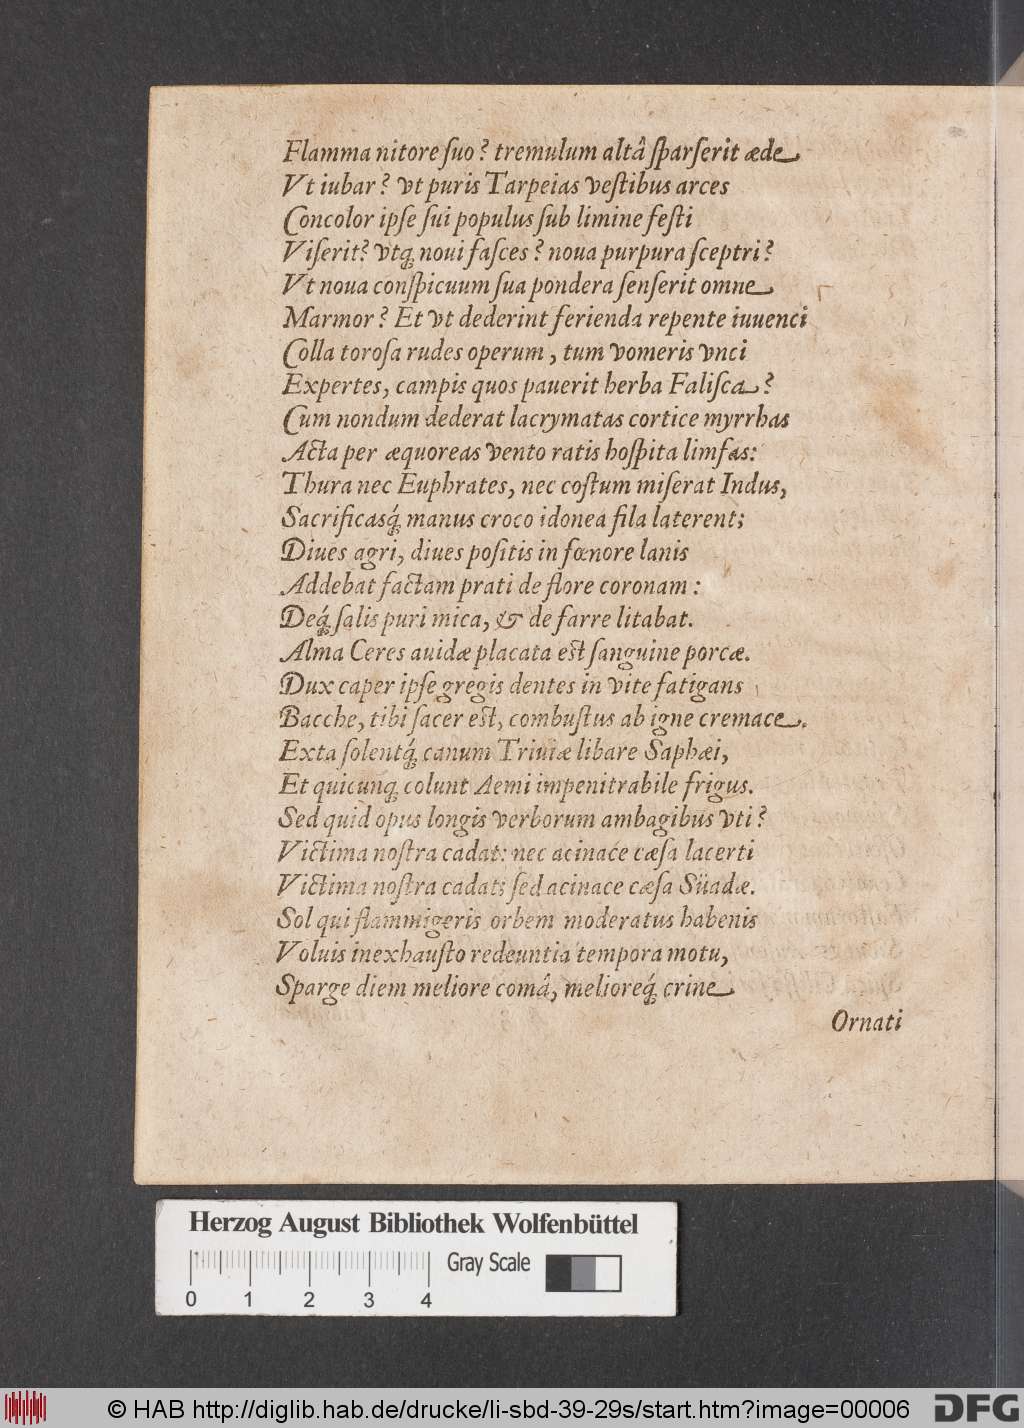 Flamma nitore ſuo? tremulum altâ ſparſerit æde
Vt iubar? vt puris Tarpeias veſtibus arces
Concolor ipſe ſui populus ſub limine feſti
Viſerit? vtq́; noui faſces? noua purpura ſceptri?
Vt noua conſpicuum ſua pondera ſenſerit omne
Marmor? Et vt dederint ferienda repente iuuenci
Colla toroſa rudes operum, tum vomeris vnci
Expertes, campis quos pauerit herba Faliſca?
Cum nondum dederat lacrymatas cortice myrrhas
Acta per æquoreas vento ratis hoſpita limfas:
Thura nec Euphrates, nec coſtum miſerat Indus,
Sacrificasq́; manus croco idonea fila laterent;
Diues agri, diues poſitis in fœnore lanis
Addebat factam prati de flore coronam:
Deq́; ſalis puri mica, & de farre litabat.
Alma Ceres auidæ placata eſt ſanguine porcæ.
Dux caper ipſe gregis dentes in vite fatigans
Bacche, tibi ſacer eſt, combuſtus ab igne cremace.
Exta ſolentq́; canum Triuiæ libare Saphæi,
Et quicunq; colunt Aemi impenitrabile frigus.
Sed quid opus longis verborum ambagibus vti?
Victima noſtra cadat: nec acinace cæſa lacerti
Victima noſtra cadat; ſed acinace cæſa Süadæ.
Sol qui flammigeris orbem moderatus habenis
Voluis inexhauſto redeuntia tempora motu,
Sparge diem meliore comâ, melioreq́; crine
Ornati
Herzog August Bibliothek Wolfenbüttel
Gray Scale
0 1 2 3 4
© HAB http://diglib.hab.de/drucke/li-sbd-39-29s/start.htm?image=00006
DFG